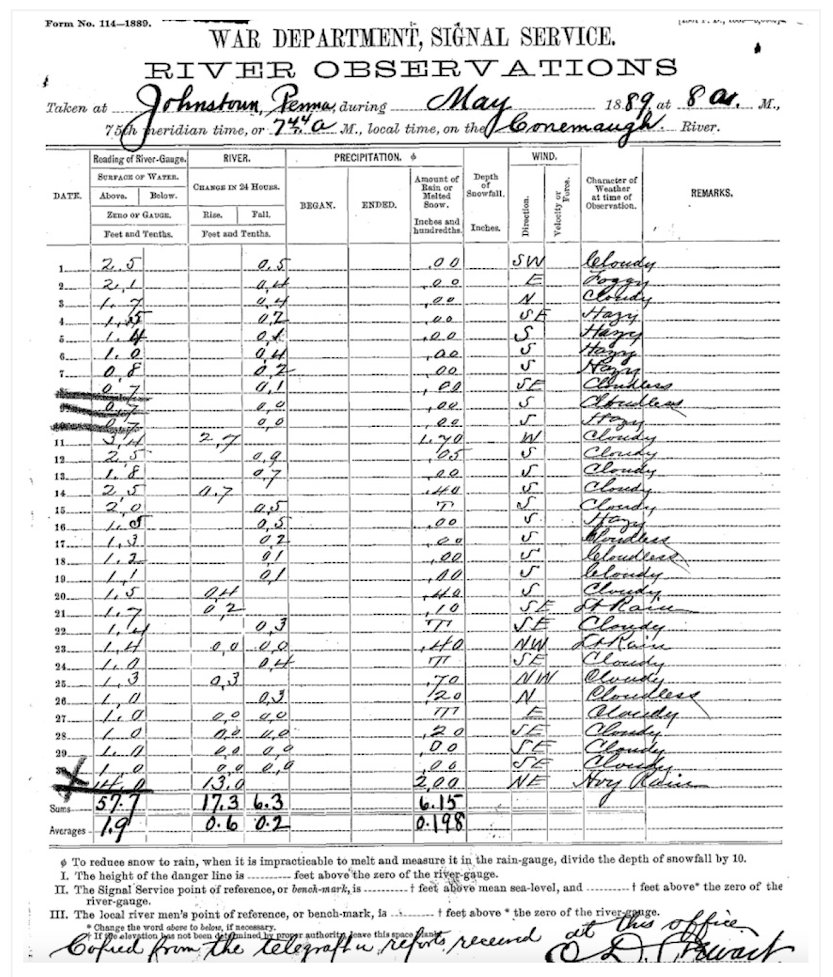 Form No. 114—1889.
WAR DEPARTMENT, SIGNAL SERVICE.
RIVER OBSERVATIONS
Taken at Johnstown, Penna, during May 1889 at 8 a. M.,
75th meridian time, or 7 44 a M., local time, on the Conemaugh River.
DATE.
Reading of River-Gauge.
SURFACE OF WATER.
Above. Below.
ZERO OF GAUGE.
Feet and Tenths.
RIVER.
CHANGE IN 24 HOURS.
Rise. Fall.
Feet and Tenths.
PRECIPITATION. ϕ
BEGAN.
ENDED.
Amount of
Rain or
Melted
Snow.
Inches and
hundredths.
Depth
of
Snowfall.
Inches.
WIND.
Direction.
Velocity or
Force.
Character of
Weather
at time of
Observation.
REMARKS.
1 2.5 0.5 .00 SW Cloudy
2 2.1 0.4 .00 E Foggy
3 1.7 0.4 .00 N Cloudy
4 1.5 0.2 .00 SE Hazy
5 1.4 0.1 .00 S Hazy
6 1.0 0.4 .00 S Hazy
7 0.8 0.2 .00 S Hazy
0.7 0.1 .00 SE Cloudless
0.7 0.0 .00 S Cloudless
0.7 0.0 .00 S Hazy
11 3.4 2.7 1.70 W Cloudy
12 2.5 0.9 .05 S Cloudy
13 1.8 0.7 .00 S Cloudy
14 2.5 0.7 .40 S Cloudy
15 2.0 0.5 T S Cloudy
16 1.5 0.5 .00 S Hazy
17 1.3 0.2 .00 S Cloudless
18 1.2 0.1 .00 S Cloudless
19 1.1 0.1 .00 S Cloudy
20 1.5 0.4 .40 S Cloudy
21 1.7 0.2 .10 SE Lt Rain
22 1.4 0.3 T SE Cloudy
23 1.4 0.0 0.0 .40 NW Lt Rain
24 1.0 0.4 T SE Cloudy
25 1.3 0.3 .70 NW Cloudy
26 1.0 0.3 .20 N Cloudless
27 1.0 0.0 0.0 T E Cloudy
28 1.0 0.0 0.0 .20 SE Cloudy
29 1.0 0.0 0.0 .00 SE Cloudy
1.0 0.0 0.0 .00 SE Cloudy
14.0 13.0 2.00 NE Hvy Rain
Sums 57.7 17.3 6.3 6.15
Averages 1.9 0.6 0.2 0.198
ϕ To reduce snow to rain, when it is impracticable to melt and measure it in the rain-gauge, divide the depth of snowfall by 10.
I. The height of the danger line is ---------- feet above the zero of the river-gauge.
II. The Signal Service point of reference, or bench-mark, is ---------- † feet above mean sea-level, and ---------- † feet above* the zero of the
river-gauge.
III. The local river men's point of reference, or bench-mark, is ---------- † feet above * the zero of the river-gauge.
* Change the word above to below, if necessary.
† If the elevation has not been determined by proper authority, leave this space blank.
Copied from the telegraphic reports received at this office